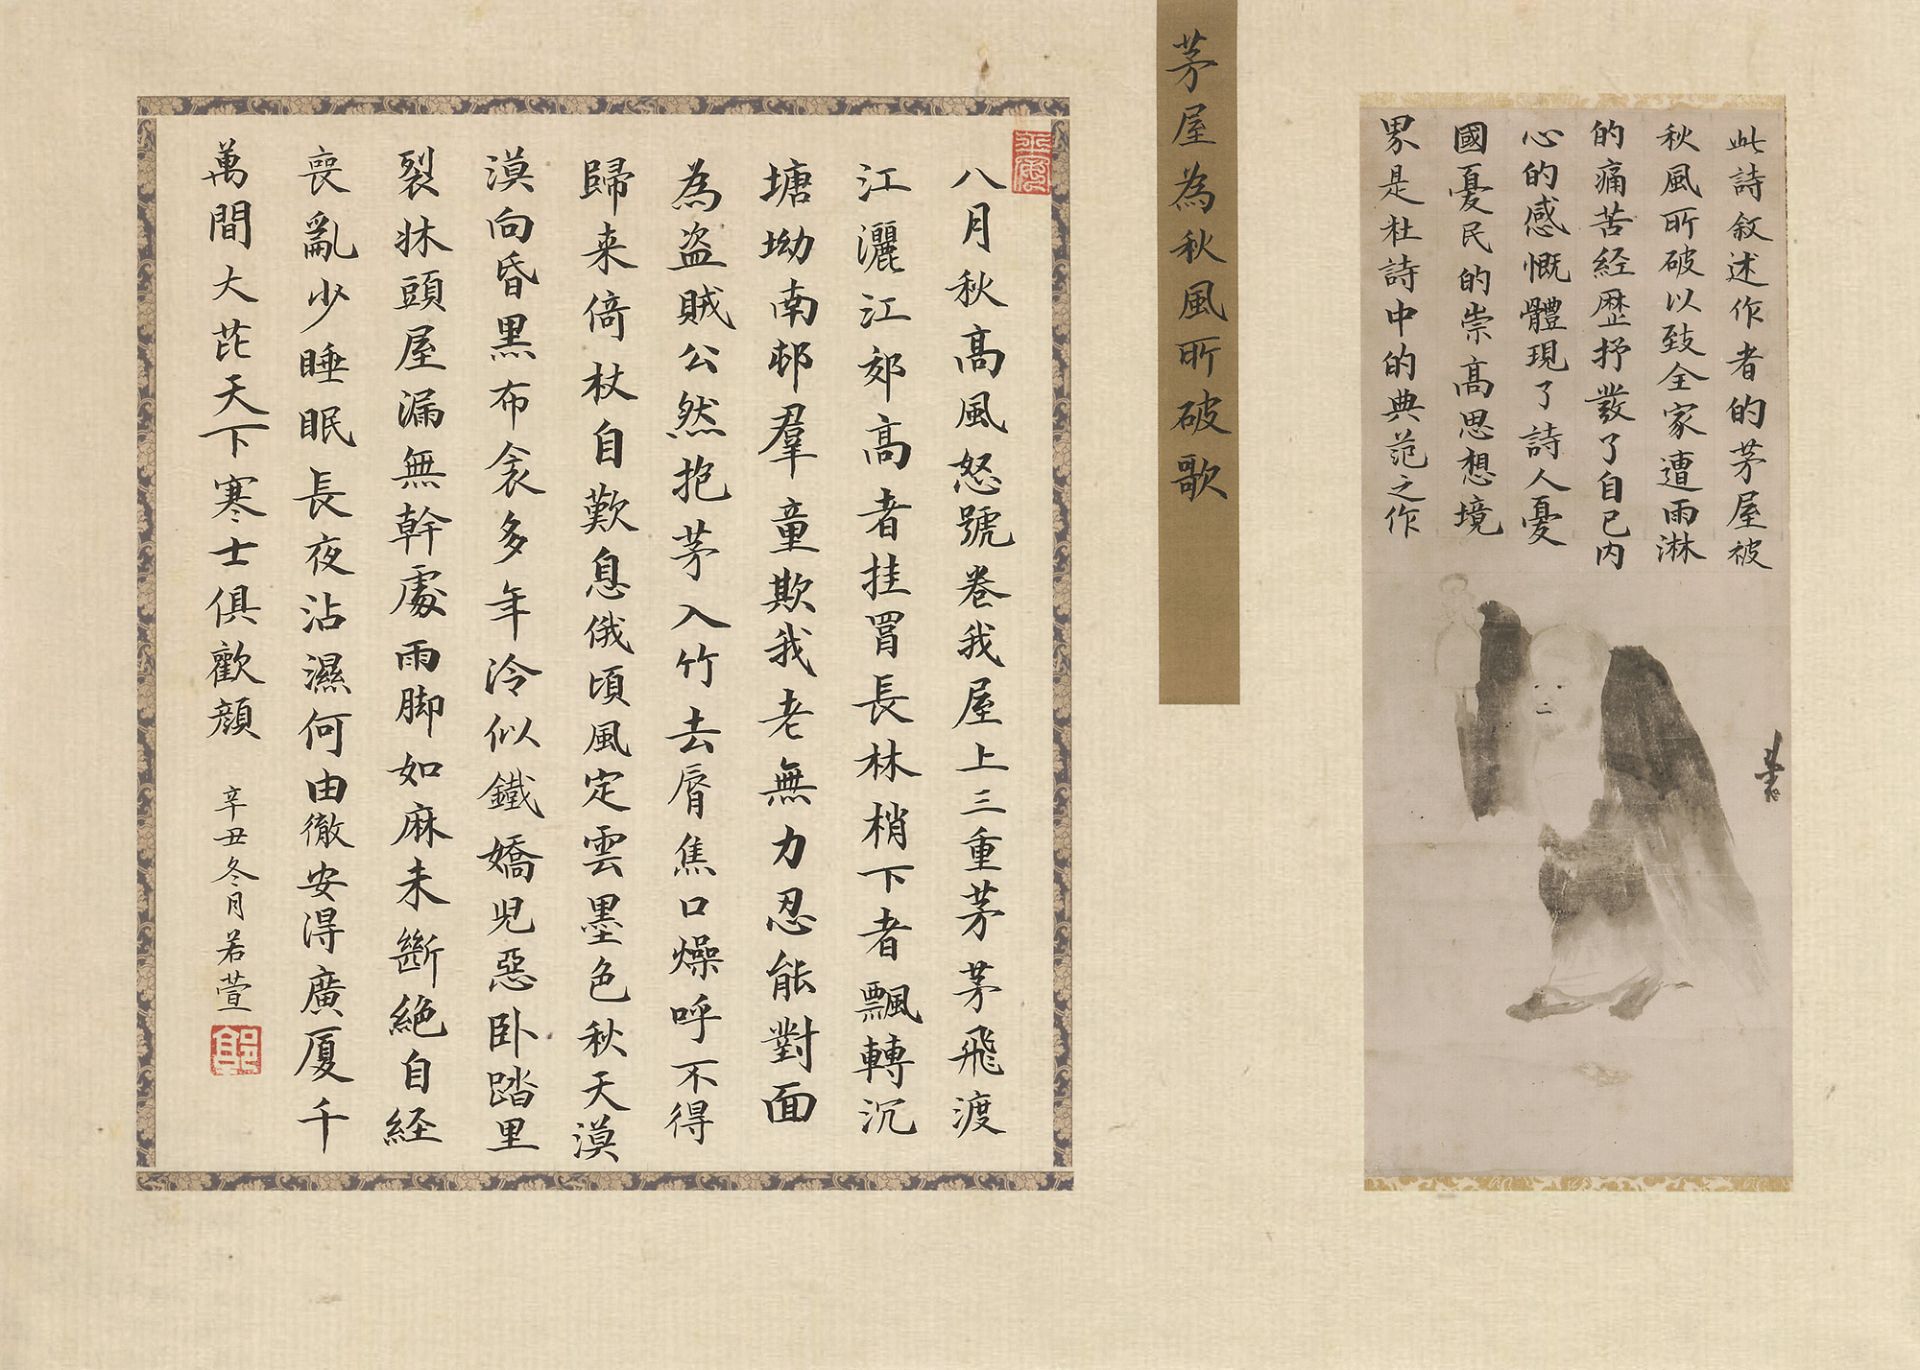 此詩敘述作者的茅屋被
秋風所破以致全家遭雨淋
的痛苦经歷抒發了自己内
心的感慨體現了詩人憂
國憂民的崇高思想境
界是杜詩中的典范之作
茅屋為秋風所破歌
八月秋高風怒號卷我屋上三重茅茅飛渡
江灑江郊高者挂罥長林梢下者飄轉沉
塘坳南邨羣童欺我老無力忍能對面
為盗賊公然抱茅入竹去脣焦口燥呼不得
歸来倚杖自歎息俄頃風定雲墨色秋天漠
漠向昏黒布衾多年冷似鐵嬌兒惡卧踏里
裂牀頭屋漏無幹處雨脚如麻未斷絶自経
喪亂少睡眠長夜沾濕何由徹安得廣厦千
萬間大芘天下寒士俱歡顔
辛丑冬月若萱